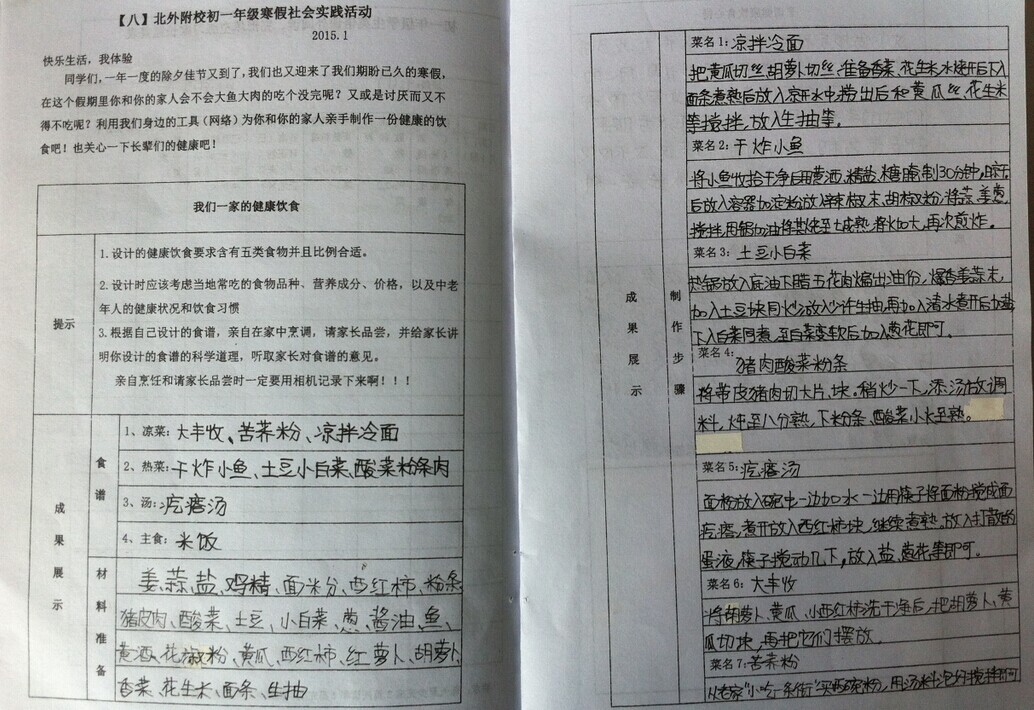 【八】北外附校初一年级寒假社会实践活动
2015.1
快乐生活，我体验
同学们，一年一度的除夕佳节又到了，我们也又迎来了我们期盼已久的寒假，
在这个假期里你和你的家人会不会大鱼大肉的吃个没完呢？又或是讨厌而又不
得不吃呢？利用我们身边的工具（网络）为你和你的家人亲手制作一份健康的饮
食吧！也关心一下长辈们的健康吧！
我们一家的健康饮食
提示
1.设计的健康饮食要求含有五类食物并且比例合适。
2.设计时应该考虑当地常吃的食物品种、营养成分、价格，以及中老
年人的健康状况和饮食习惯
3.根据自己设计的食谱，亲自在家中烹调，请家长品尝，并给家长讲
明你设计的食谱的科学道理，听取家长对食谱的意见。
亲自烹饪和请家长品尝时一定要用相机记录下来啊！！！
成果展示
食谱
1、凉菜：大丰收、苦荞粉、凉拌冷面
2、热菜：干炸小鱼、土豆小白菜、酸菜粉条肉
3、汤：疙瘩汤
4、主食：米饭
材料准备
姜、蒜、盐、鸡精、面米分、西红柿、粉条
猪皮肉、酸菜、土豆、小白菜、葱、酱油、鱼、
黄酒、花椒粉、黄瓜、西红柿、红萝卜、胡萝卜、
香菜、花生米、面条、生抽
成果展示
制作步骤
菜名1：凉拌冷面
把黄瓜切丝,胡萝卜切丝,准备香菜、花生米水烧开后下入
面条煮熟后放入凉开水中,捞出后和黄瓜丝、花生米
等搅拌,放入生抽等。
菜名2：干炸小鱼
将小鱼收拾干净后用黄酒、精盐、糖腌制30分钟,
后放入容器加淀粉放入辣椒末、胡椒粉,将蒜、姜、葱
搅拌,用锅加油将其炸至七成熟,将火加大,再次煎炸。
菜名3：土豆小白菜
热锅放入底油下腊五花肉煸出油份,爆香姜蒜末,
加入土豆块同炒放少许生抽,再加入清水煮开后加盐
下入白菜同煮,至白菜变软后加入葱花即可。
菜名4：猪肉酸菜粉条
将带皮猪肉切大片、块。稍炒一下,添汤放调
料,炖至八分熟,下粉条、酸菜小火至熟。
菜名5：疙瘩汤
面粉放入碗中一边加水一边用筷子将面粉搅成面
疙瘩,煮开放入西红柿块,继续煮熟。放入打散的
蛋液,筷子搅动几下,放入盐、葱花等即可。
菜名6：大丰收
将胡萝卜、黄瓜、小西红柿洗干净后,把胡萝卜、黄
瓜切块,再把它们摆放。
菜名7：苦荞粉
从老家"小吃一条街"买荞粉,用汤料泡好搅拌即可